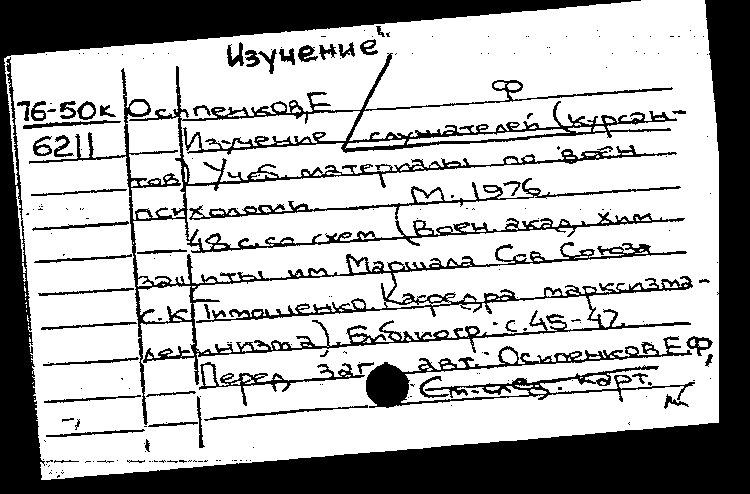 Изучение
76-50к Осипенков, Е Ф
6211 Изучение слушателей (курсан-
тов) Учеб. материалы по воен
психологии. М., 1976.
48 с. со схем (Воен. акад. хим.
защиты им. Маршала Сов Союза
С.К Тимошенко. Кафедра марксизма-
ленинизма). Библиогр.: с. 45-47.
Перед загл авт.: Осипенков Е.Ф,
См. след. карт.